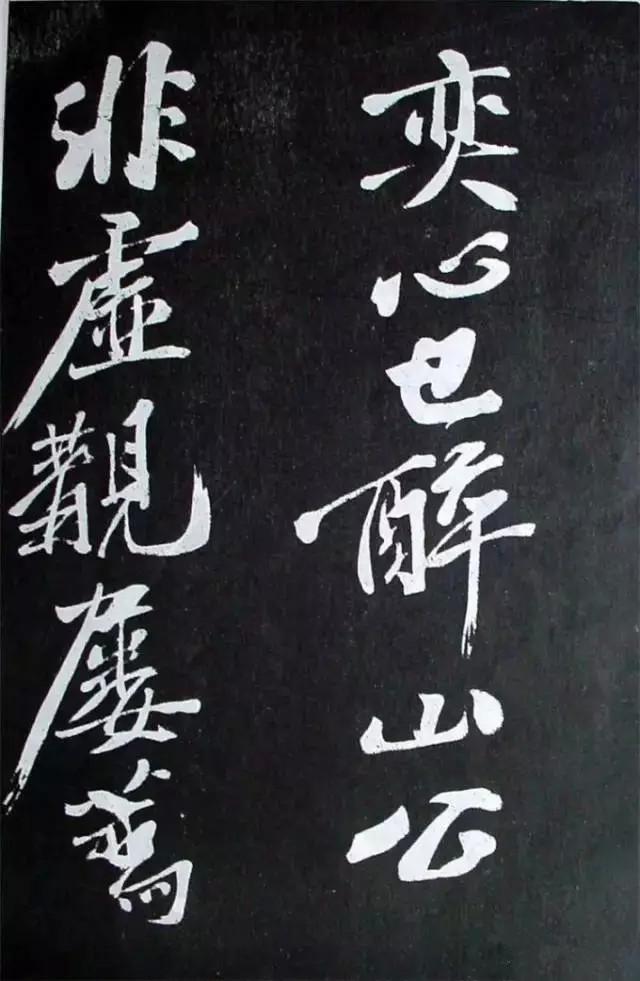 奕心已醉山公
非虛覯屢薦